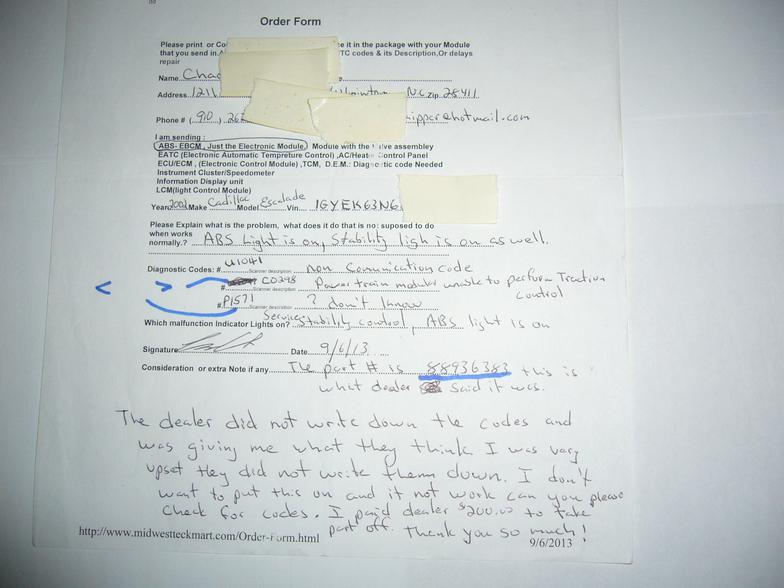 Order Form
Please print or Co e it in the package with your Module
that you send in. TC codes & its Description,Or delays
repair
Name Chad
Address 1211 N.C. Zip 28411
Phone # (910) 267 hipper@hotmail.com
I am sending :
ABS- EBCM, Just the Electronic Module, Module with the valve assembly
EATC (Electronic Automatic Tempreture Control) ,AC/Heater Control Panel
ECU/ECM , (Electronic Control Module) ,TCM, D.E.M.: Diagnostic code Needed
Instrument Cluster/Speedometer
Information Display unit
LCM(light Control Module)
Year Make Cadillac Model Escalade Vin 1GYEK63N6
Please Explain what is the problem, what does it do that is not supposed to do
when works
normally.? ABS Light is on, Stability ligh is on as well.
Diagnostic Codes: # U1041 Scanner description non Comunication code
< > # C0298 Scanner description Powertrain modular unable to perform Traction
Control
# P1571 Scanner description ? don't know
Which malfunction Indicator Lights on? Service Stability control, ABS light is on
Signature Date 9/6/13
Consideration or extra Note if any The part # is 88936383 this is
what dealer said it was.
The dealer did not write down the codes and
was giving me what they think I was vary
upset they did not write them down. I don't
want to put this on and it not work can you please
check for codes. I paid dealer $200.00 to take
part off. Thank you so much!
http://www.midwestteckmart.com/Order-Form.html
9/6/2013